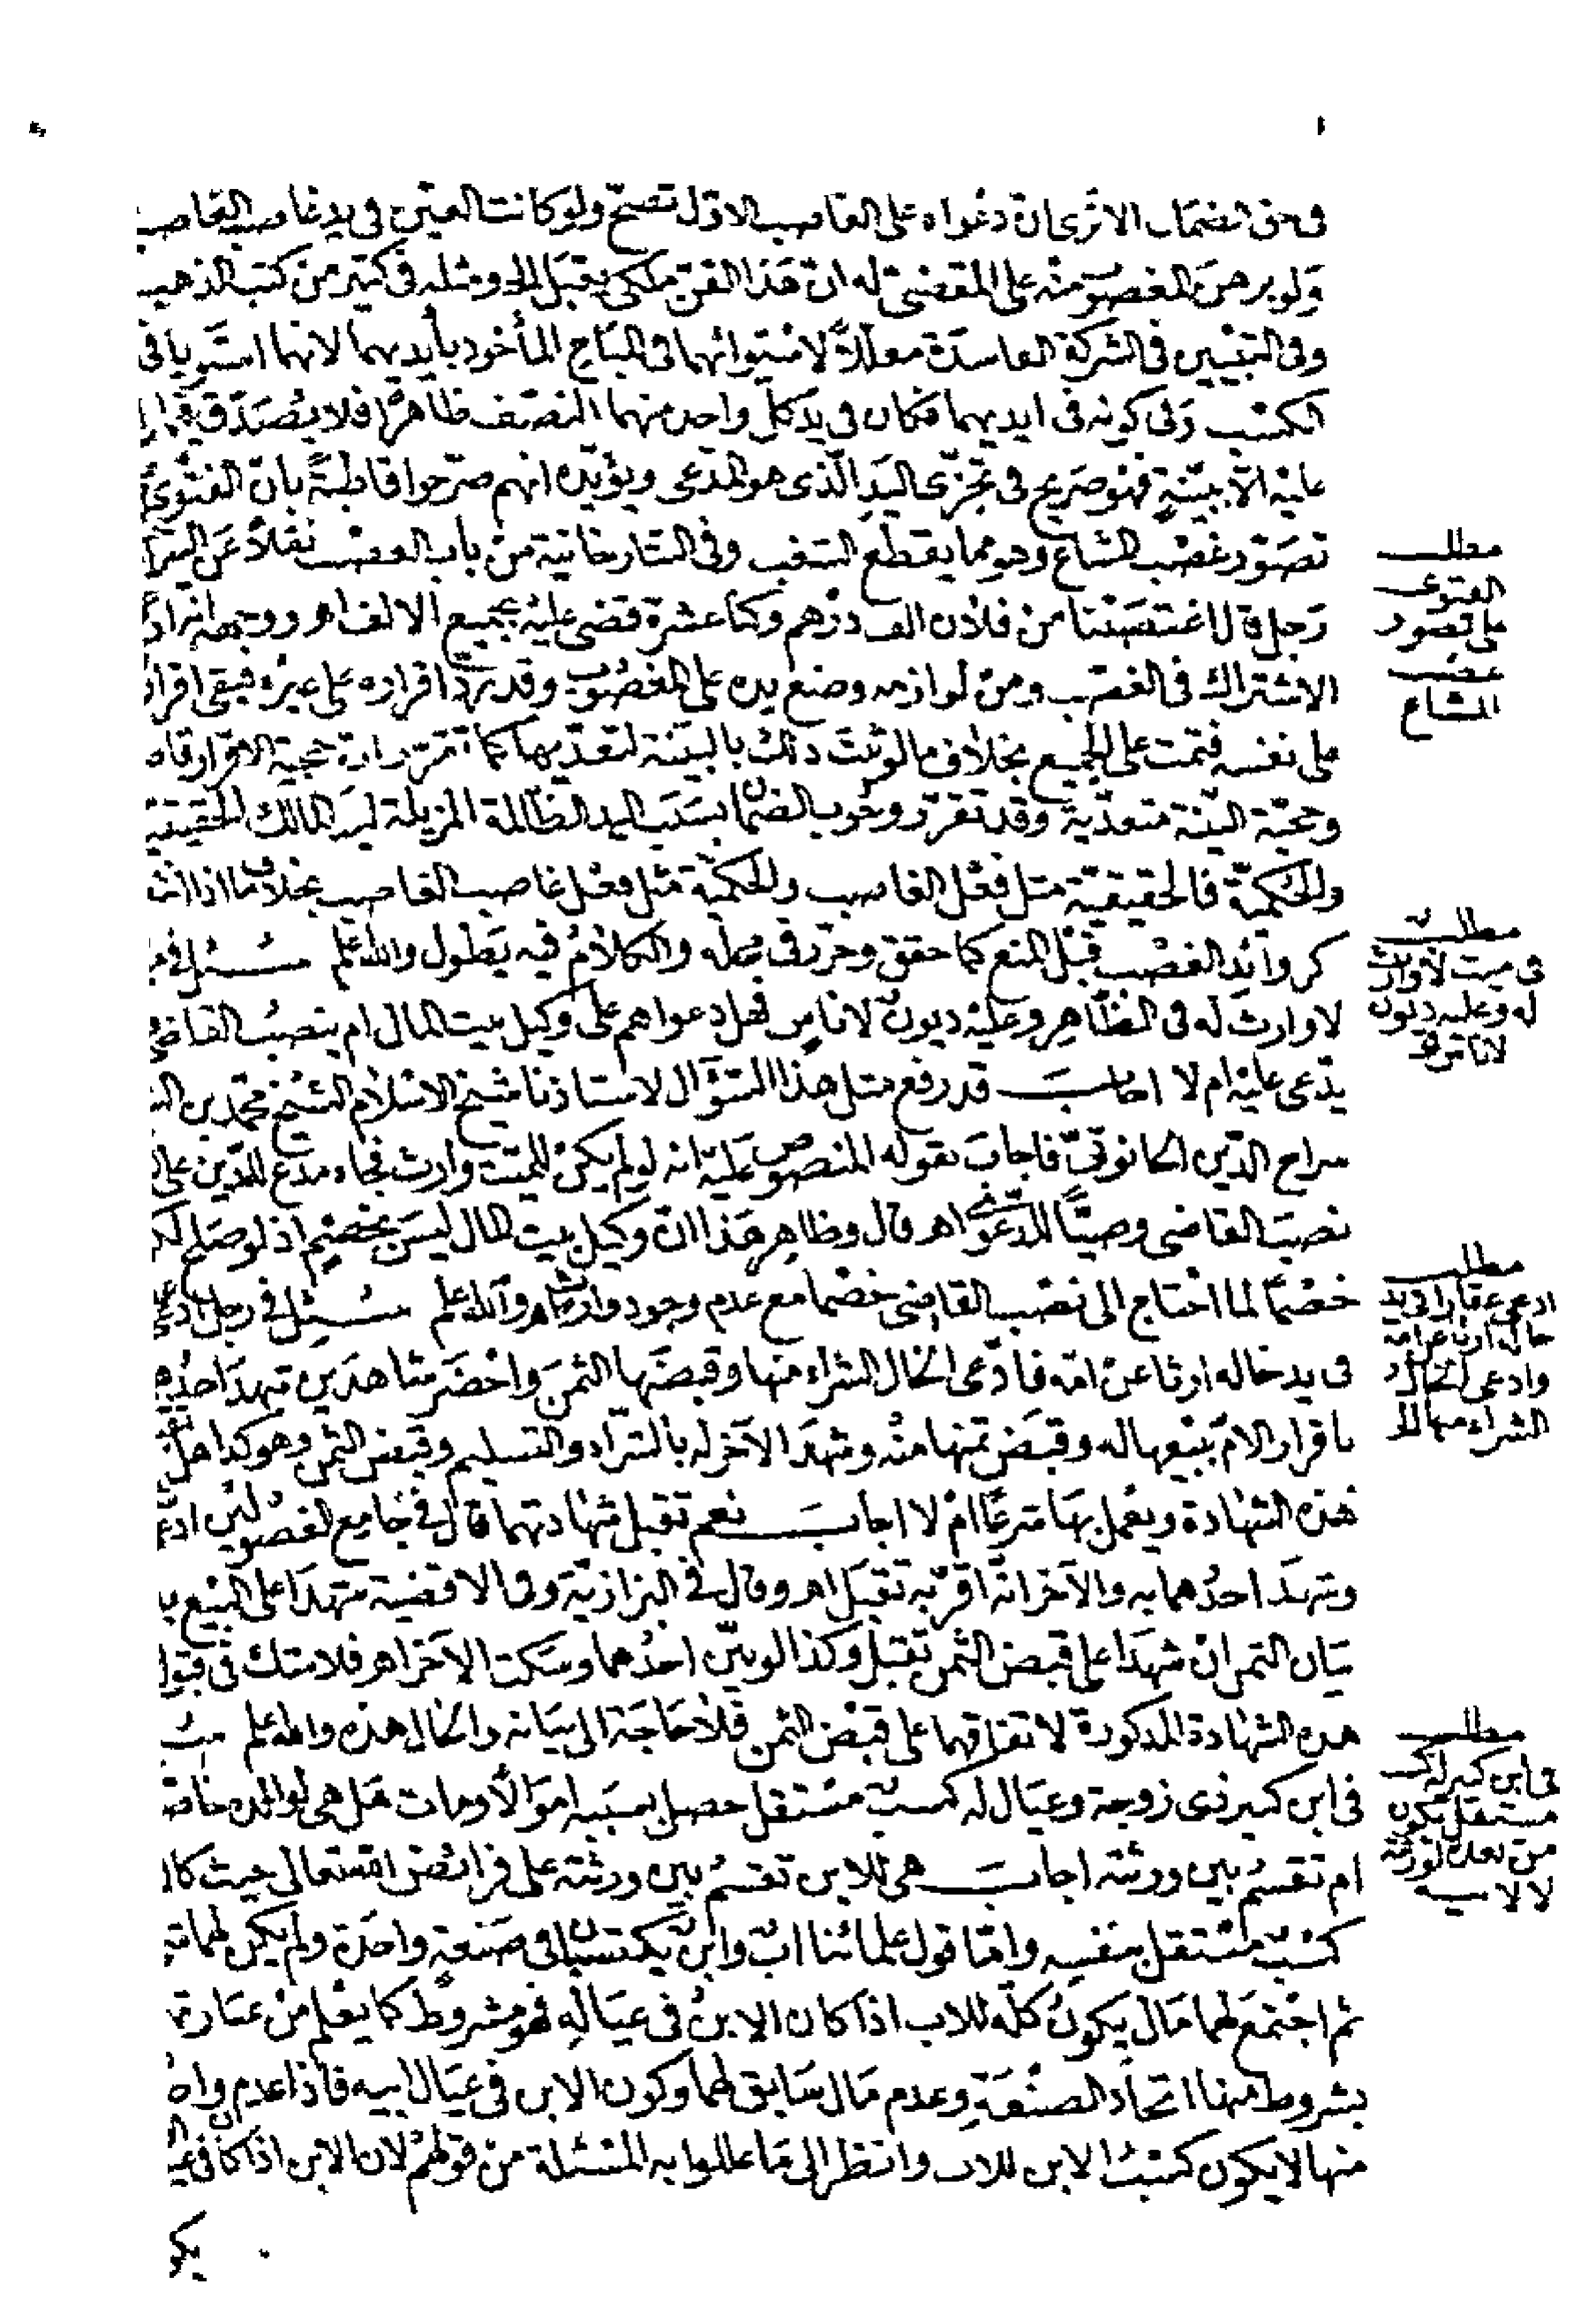 في حق الضمان الا ترى ان دعواه على الغاصب الاول تصح ولو كانت العين في يد غاصب الغاصب
ولو برهن المغصوب منه على المقضي له ان هذا القن ملكي يقبل الخ ومثله في كثير من كتب المذهب
وفي التبيين في الشركة الفاسدة معللاً لاستوائهما في المباح المأخوذ بأيديهما لانهما استويا في
الكسب وفي كونه في ايديهما فكان في يد كل واحد منهما النصف ظاهراً فلا يصدق فيما
عليه الا ببينة فهو صريح في تجزي اليد الذي هو المدعى ويؤيده انهم صرحوا قاطبةً بان الفتوى
تصور غصب المشاع وهو مما يقطع الشغب وفي التتارخانية من باب الغصب نقلاً عن
رجل قال اغتصبنا من فلان الف درهم وكنا عشرة قضى عليه بجميع الالف اهـ ووجهه انه
الاشتراك في الغصب ومن لوازمه وضع يده على المغصوب وقد رد اقراره على غيره فبقي اقرار
على نفسه فتمت على الجميع بخلاف ما لو ثبت ذلك بالبينة لتعديها كما تقرر ان حجية الاقرار قاه
وحجية البينة متعدية وقد تقرر وجوب الضمان بسبب اليد الظالمة المزيلة ليد المالك الحقيقية
والحكمية فالحقيقية مثل فعل الغاصب والحكمية مثل فعل غاصب الغاصب بخلاف ما اذا
كزوائد الغصب قبل المنع كما حقق وحرر في محله والكلام فيه يطول والله اعلم سئل في
لا وارث له في الظاهر وعليه ديون لاناس فهل دعواهم على وكيل بيت المال ام ينصب القاضي
يدعى عليه ام لا اجاب قد رفع مثل هذا السؤال لاستاذنا شيخ الاسلام الشيخ محمد بن
سراج الدين الحانوتي فاجاب بقوله المنصوص عليه انه لو لم يكن للميت وارث فجاء مدع للدين على
نصب القاضي وصياً للدعوى اهـ قال وظاهر هذا ان وكيل بيت المال ليس بخصم اذ لو صلح
خصماً لما احتاج الى نصب القاضي خصما مع عدم وجود وارث اهـ والله اعلم سئل في رجل ادعى
في يد خاله ارثا عن امه فادعى الخال الشراء منها وقبضها الثمن واحضر شاهدين شهد احدهم
باقرار الام ببيعها له وقبض ثمنها منه وشهد الآخر له بالشراء والتسليم وقبض الثمن وهو كذا هل
هذه الشهادة ويعمل بها شرعاً ام لا اجاب نعم تقبل شهادتهما قال في جامع الفصولين
وشهد احدهما به والآخر انه اقر به تقبل اهـ وقال في البزازية وفي الاقضية شهدا على البيع
بيان الثمن ان شهدا على قبض الثمن تقبل وكذا لو بين احدهما وسكت الآخر اهـ فلا شك في قبول
هذه الشهادة المذكورة لاتفاقهما على قبض الثمن فلا حاجة الى بيانه والحال هذه والله اعلم
في ابن كبير ذي زوجة وعيال له كسب مستقل حصل بسببه اموالاً ومات هل هي لوالده خاصة
ام تقسم بين ورثته اجاب هي للابن تقسم بين ورثته على فرائض الله تعالى حيث كان
كسب مستقل بنفسه واما قول علمائنا اب وابن يكتسبان في صنعة واحدة ولم يكن لهما
ثم اجتمع لهما مال يكون كله للاب اذا كان الابن في عياله فهو مشروط كما يعلم من عبارتهم
بشروط منها اتحاد الصنعة وعدم مال سابق لهما وكون الابن في عيال ابيه فاذا عدم واحد
منها لا يكون كسب الابن للاب وانظر الى ما عللوا به المسئلة من قولهم لان الابن اذا كان في
يكو
مطلب
الفتوى
على تصور
غصب
المشاع
مطلب
في ميت لا وارث
له وعليه ديون
لاناس
مطلب
ادعى عقارا في يد
خاله ارثا عن امه
وادعى الخال
الشراء منها
مطلب
في ابن كبير له كسب
مستقل يكون
من بعده لورثته
لا لابيه